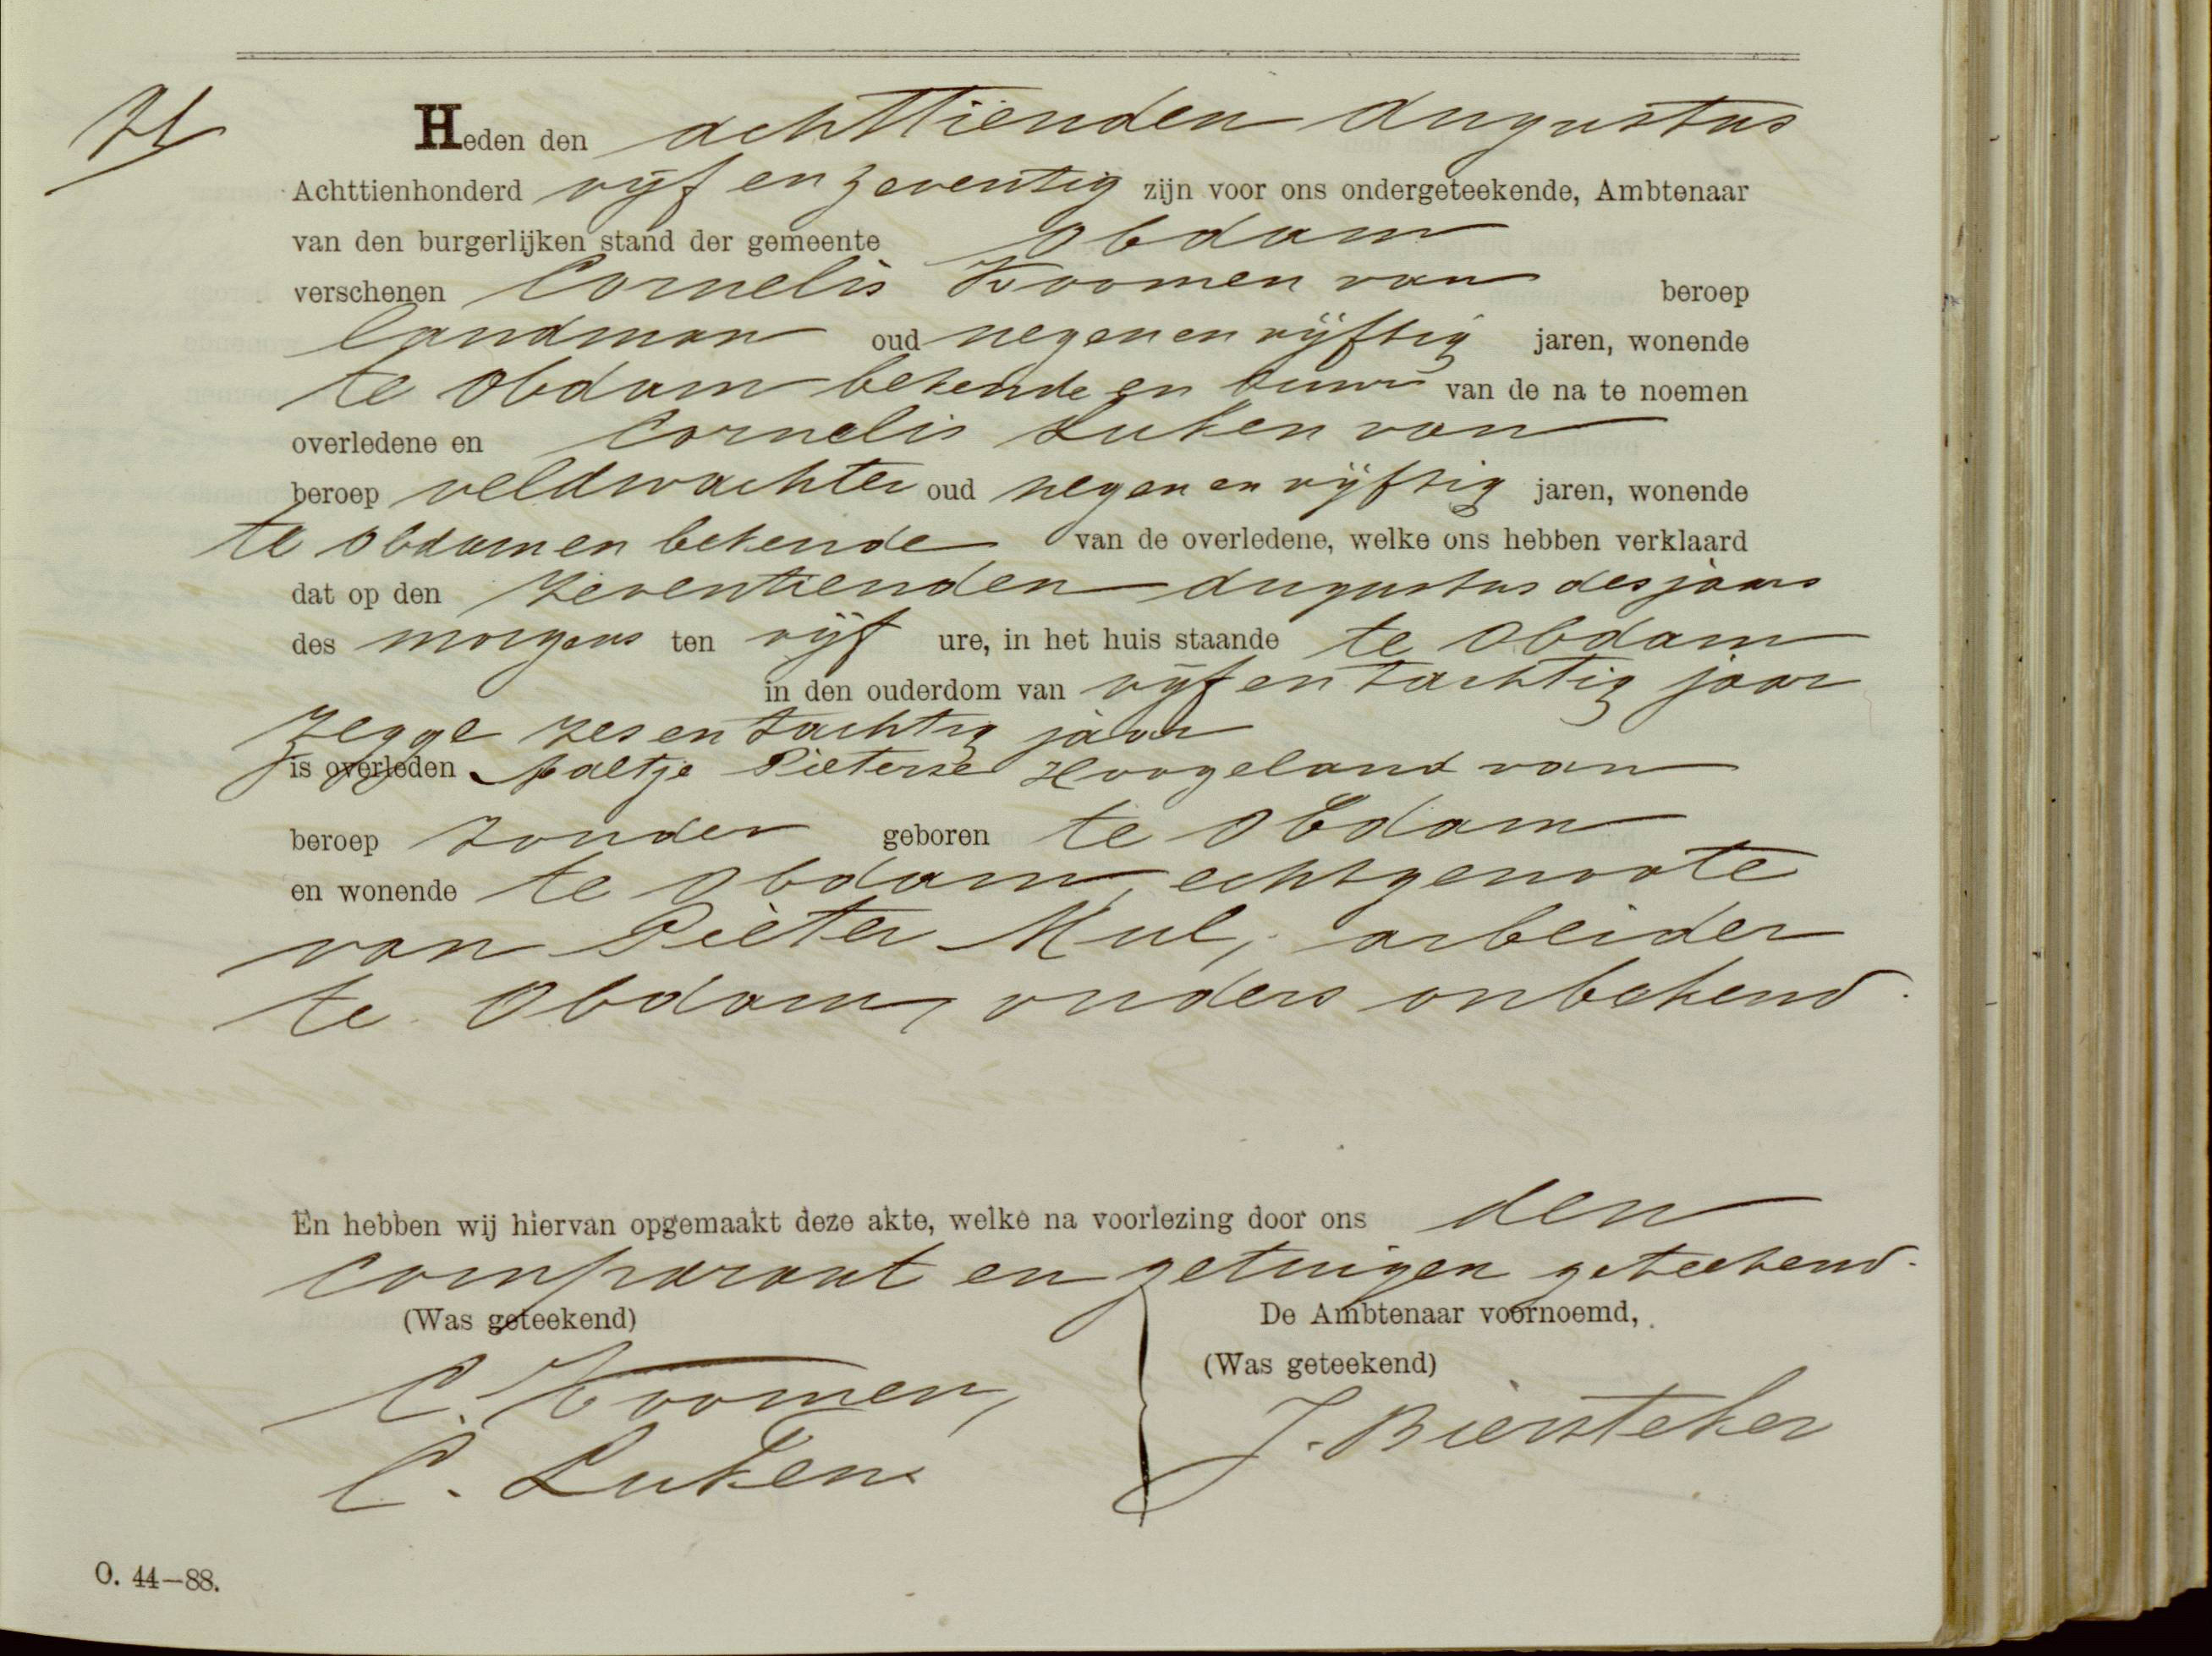 71
Heden den achttienden Augustus
Achttienhonderd vijf en zeventig zijn voor ons ondergeteekende, Ambtenaar
van den burgerlijken stand der gemeente Obdam
verschenen Cornelis Koomen van beroep
landman oud negen en vijftig jaren, wonende
te Obdam bekende en buur van de na te noemen
overledene en Cornelis Luken van
beroep veldwachter oud negen en vijftig jaren, wonende
te Obdam en bekende van de overledene, welke ons hebben verklaard
dat op den zeventienden Augustus des jaars
des morgens ten vijf ure, in het huis staande te Obdam
in den ouderdom van vijf en tachtig jaar
zegge zes en tachtig jaar
is overleden Aaltje Pieterse Hoogeland van
beroep zonder geboren te Obdam
en wonende te Obdam, echtgenoote
van Pieter Mul, arbeider
te Obdam, ouders onbekend.
En hebben wij hiervan opgemaakt deze akte, welke na voorlezing door ons den
comparant en getuigen geteekend.
(Was geteekend) De Ambtenaar voornoemd,
(Was geteekend)
C. Koomen,
J. Biersteker
C. Luken
O. 44—88.